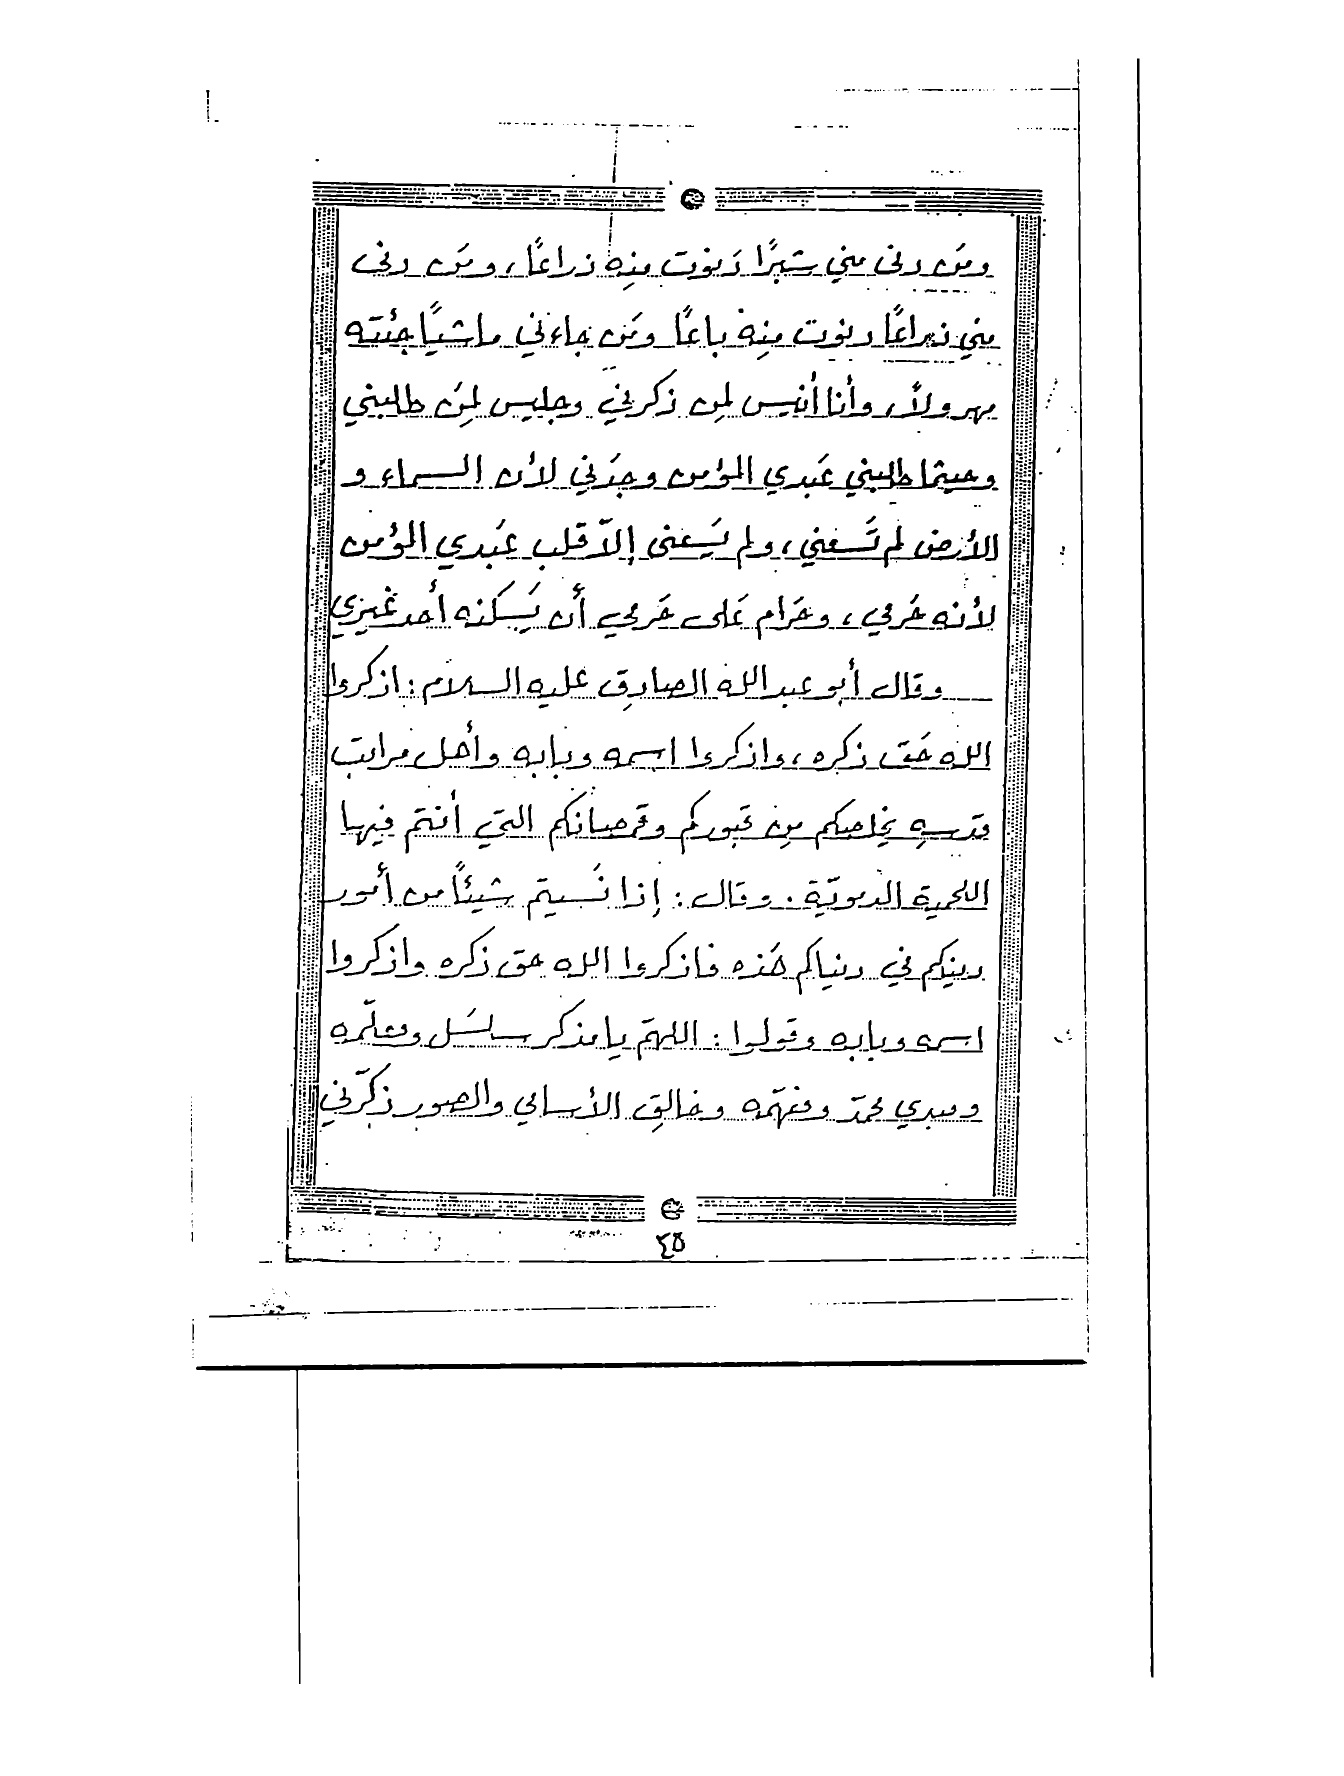 ومَن دنى مني شبرًا دَنوت منه ذراعًا، ومَن دنى
مني ذراعًا دنوت منه باعًا ومَن جاءني ماشيًا جئته
مهرولاً، وأنا أنيس لمن ذكرني وجليس لمَن طلبني
وحيثما طلبني عَبدي المؤمن وجدَني لأن السماء و
الأرض لم تَسعني، ولم يَسعني إلاّ قلب عَبدي المؤمن
لأنه حَرمي، وحَرام عَلى حَرمي أن يَسكنه أحد غَيري
وقال أبو عبد الله الصادق عليه السلام: اذكروا
الله حَق ذكره، واذكروا اسمه وبابه وأهل مراتب
قدسه يخلصكم من قبوركم وقمصانكم التي أنتم فيها
اللحمية الدمويّة. وقال: إذا نَسيتم شيئًا من أمور
دينكم في دنياكم هَذه فاذكروا الله حق ذكره واذكروا
اسمه وبابه وقولوا: اللهمّ يا مذكر سلسَل ومعلّمه
ومبدي محمدّ ومفهّمه وخالق الأسامي والصور ذكّرني
٤٥